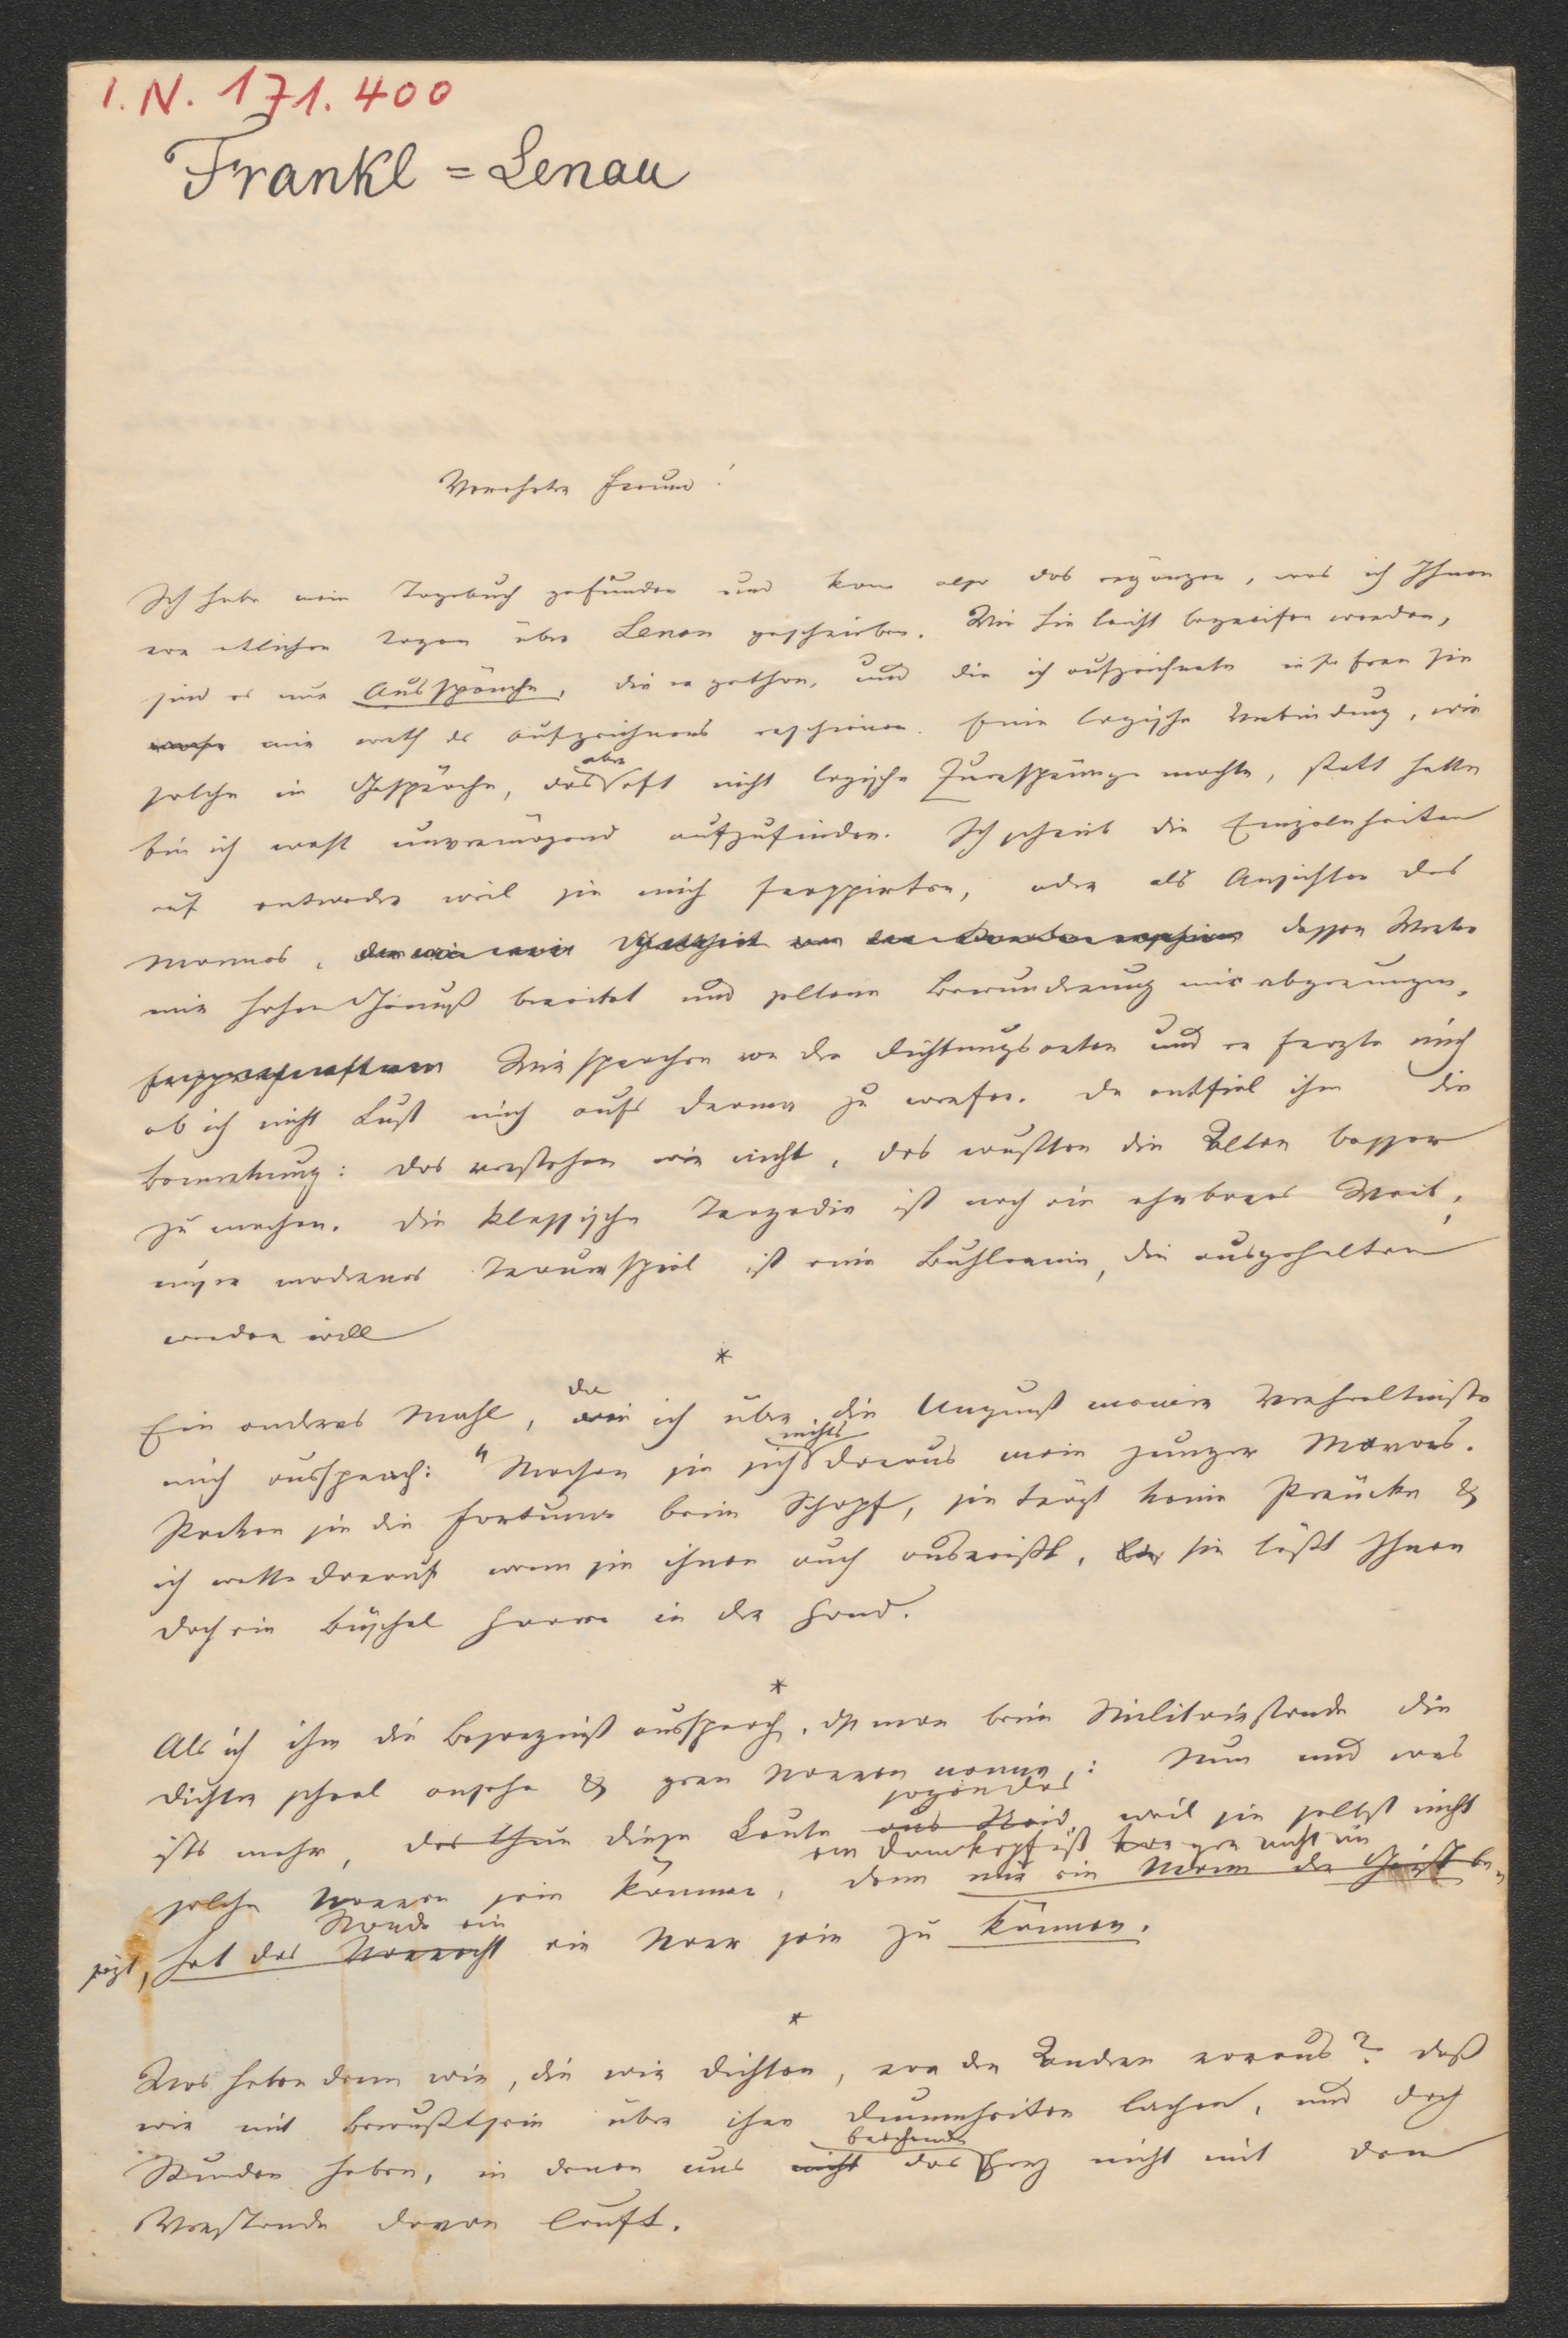 I. N. 171.400
Frankl = Lenau
Verehrter Freund!
Ich habe mein Tagebuch gefunden und kann also das ergänzen, was ich Ihnen
vor etlichen Tagen über Lenau geschrieben. Wie Sie leicht begreifen werden,
sind es nur Aussprüche, die er gethan, und die ich aufzeichnete in so fern sie
mir werth des Aufzeichnens erschienen. Eine logische Verbindung, wie
aber
solche im Gespräche, das oft nicht logische Quersprünge machte, statt hatte
bin ich unvermögend aufzufinden. Ich schrieb die Einzelnheiten
auf entweder weil sie mich frappirten, oder als Ansichten des
Mannes, dessen Werke
mir hohen Genuß bereitet und seltene Bewunderung mir abgerungen.
Wir sprachen von den Dichtungsarten und er fragte mich
ob ich nicht Lust mich aufs Drama zu werfen. Da entfiel ihm die
Bemerkung: das verstehen wir nicht, das wußten die Alten besser
zu machen. Die klassische Tragödie ist noch ein ehrbares Weib,
unser modernes Trauerspiel ist eine Buhlerin, die ausgehalten
werden will
*
da
Ein anderes Mahl, wie ich über die Ungunst meiner Verhältnisse
nichts
mich aussprach: "Machen sie sich daraus mein junger Mann.
Packen sie die Fortuna beim Schopf, sie trägt keine Perücke &
ich wette darauf wenn sie ihnen auch ausreißt, sie läßt Ihnen
doch ein Büschel Haare in der Hand.
*
Als ich ihm die Besorgniß aussprach, daß man beim Militärstande die
Dichter scheel ansehe & gern Narren nenne: Nun und was
ists mehr, das thun diese Leute aus Neid, weil sie selbst nicht
ein Dumkopf ist gar nicht im
solche Narren sein können, denn nur ein Mann der Geist be-
Stande ein
sizt, hat das Vorrecht ein Narr sein zu können.
*
Was haben denn wir, die wir dichten, vor den Andern voraus? daß
wir mit Bewußtsein über ihre Dummheiten lachen, und doch
Stunden haben, in denen uns nicht das Herz nicht mit dem
Verstande davon lauft.